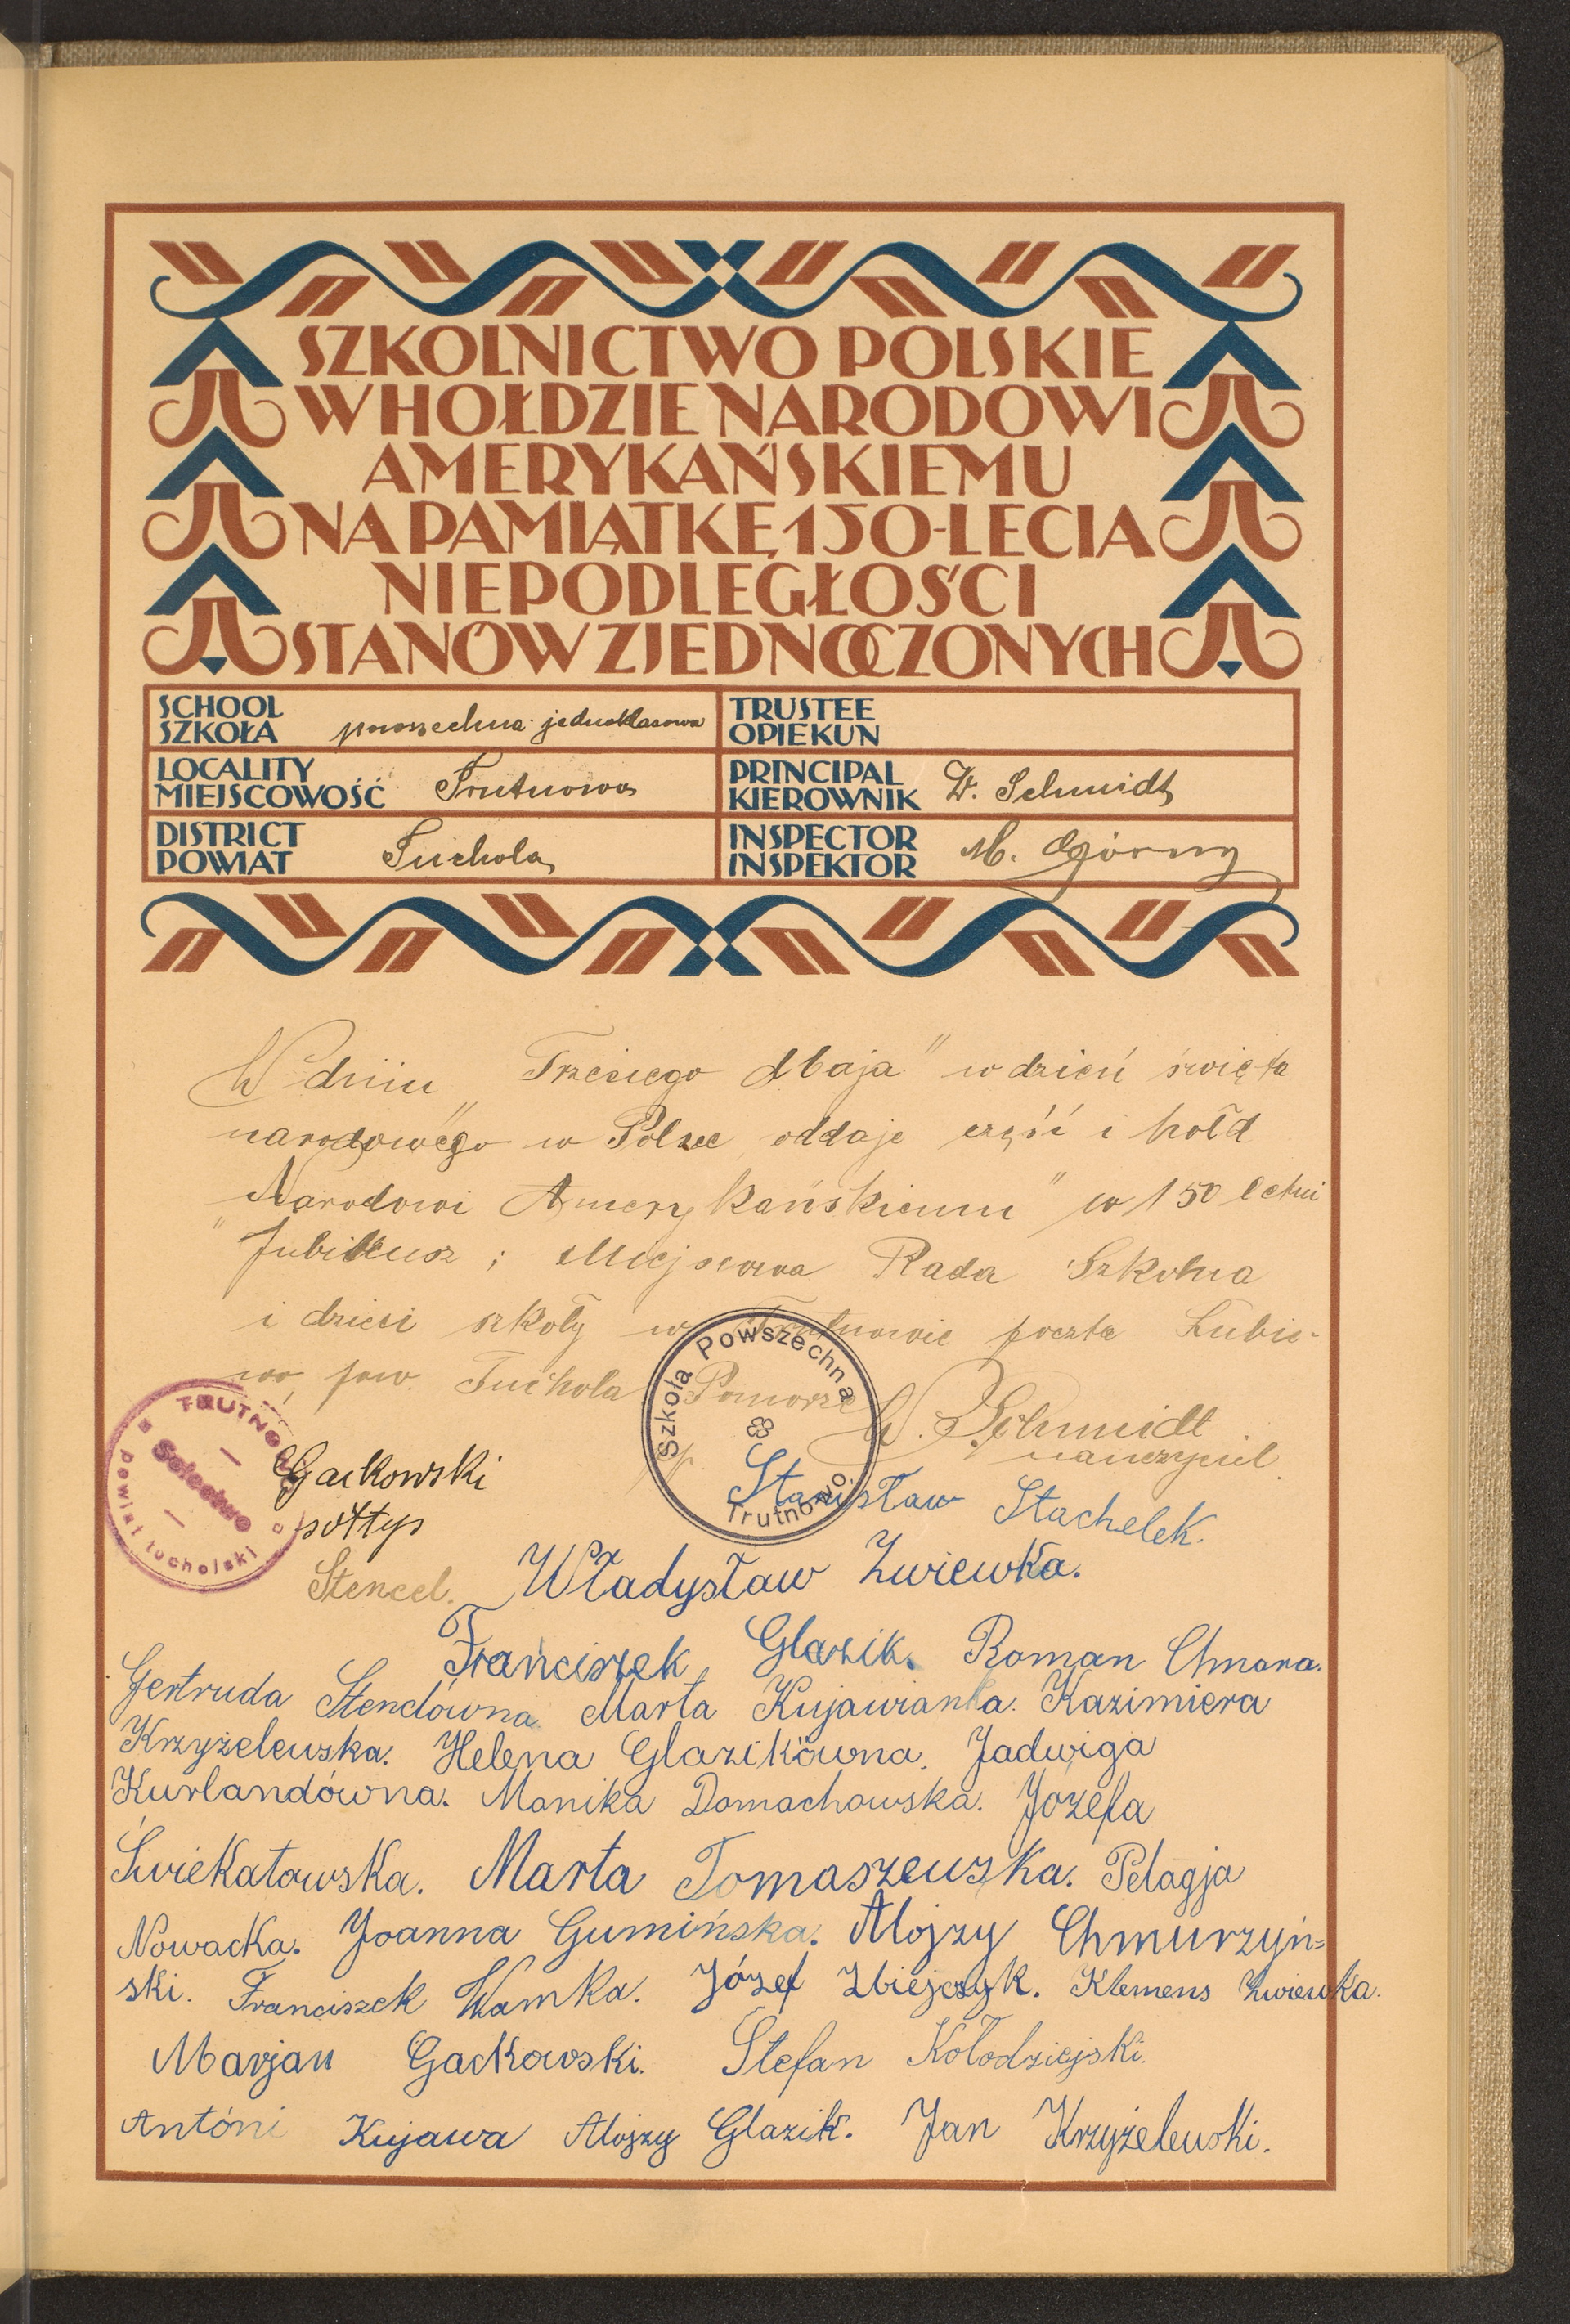 SZKOLNICTWO POLSKIE
W HOŁDZIE NARODOWI
AMERYKAŃSKIEMU
NA PAMIĄTKĘ 150-LECIA
NIEPODLEGŁOŚCI
STANÓW ZJEDNOCZONYCH
SCHOOL
SZKOŁA powszechna jednoklasowa
TRUSTEE
OPIEKUN
LOCALITY
MIEJSCOWOŚĆ Trutnowo
PRINCIPAL
KIEROWNIK W. Schmidt
DISTRICT
POWIAT Tuchola
INSPECTOR
INSPEKTOR M. Górny
W dniu „Trzeciego Maja" w dzień święta
narodowego w Polsce oddaje cześć i hołd
„Narodowi Amerykańskiemu" w 150 letni
Jubileusz; Miejscowa Rada Szkolna
i dzieci szkoły w Trutnowie poczta Lubie-
wo, pow. Tuchola Pomorze
W. Schmidt
nauczyciel
Szkoła Powszechna
Trutnowo.
TRUTNOWO
Sołectwo
powiat tucholski
Gackowski
sołtys
Stanisław Stachelek.
Stencel. Władysław Żwiewka.
Franciszek Glazik. Roman Chmara.
Gertruda Stenclówna. Marta Kujawianka. Kazimiera
Krzyżelewska. Helena Glazikówna. Jadwiga
Kurlandówna. Monika Domachowska. Józefa
Świekatowska. Marta Tomaszewska. Pelagja
Nowacka. Joanna Gumińska. Alojzy Chmurzyń=
ski. Franciszek Wamka. Józef Zbiejczyk. Klemens Żwiewka.
Marjan Gackowski. Stefan Kołodziejski.
Antóni Kujawa Alojzy Glazik. Jan Krzyżelewski.